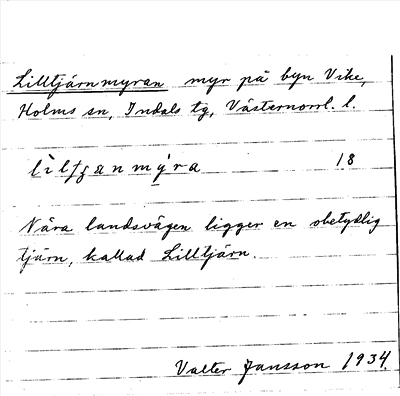 Lilltjärnmyran myr på byn Vike,
Holms sn, Indals tg, Västernorrl. l.
lìltʃanmýra 18
Nära landsvägen ligger en obetydlig
tjärn, kallad Lilltjärn.
Valter Jansson 1934.